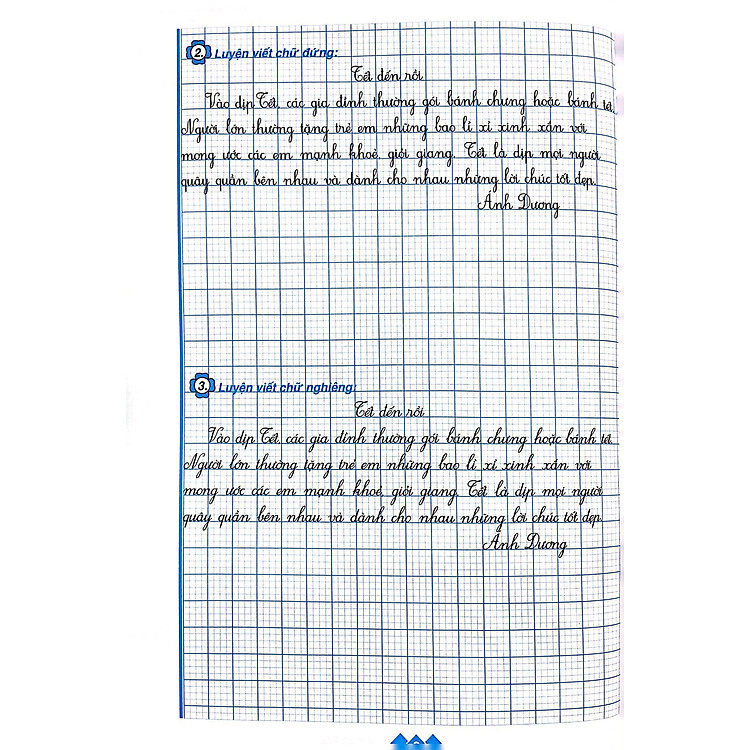 2. Luyện viết chữ đứng:
Tết đến rồi
Vào dịp Tết, các gia đình thường gói bánh chưng hoặc bánh tét.
Người lớn thường tặng trẻ em những bao lì xì xinh xắn với
mong ước các em mạnh khoẻ, giỏi giang. Tết là dịp mọi người
quây quần bên nhau và dành cho nhau những lời chúc tốt đẹp.
Ánh Dương
3. Luyện viết chữ nghiêng:
Tết đến rồi
Vào dịp Tết, các gia đình thường gói bánh chưng hoặc bánh tét.
Người lớn thường tặng trẻ em những bao lì xì xinh xắn với
mong ước các em mạnh khoẻ, giỏi giang. Tết là dịp mọi người
quây quần bên nhau và dành cho nhau những lời chúc tốt đẹp.
Ánh Dương